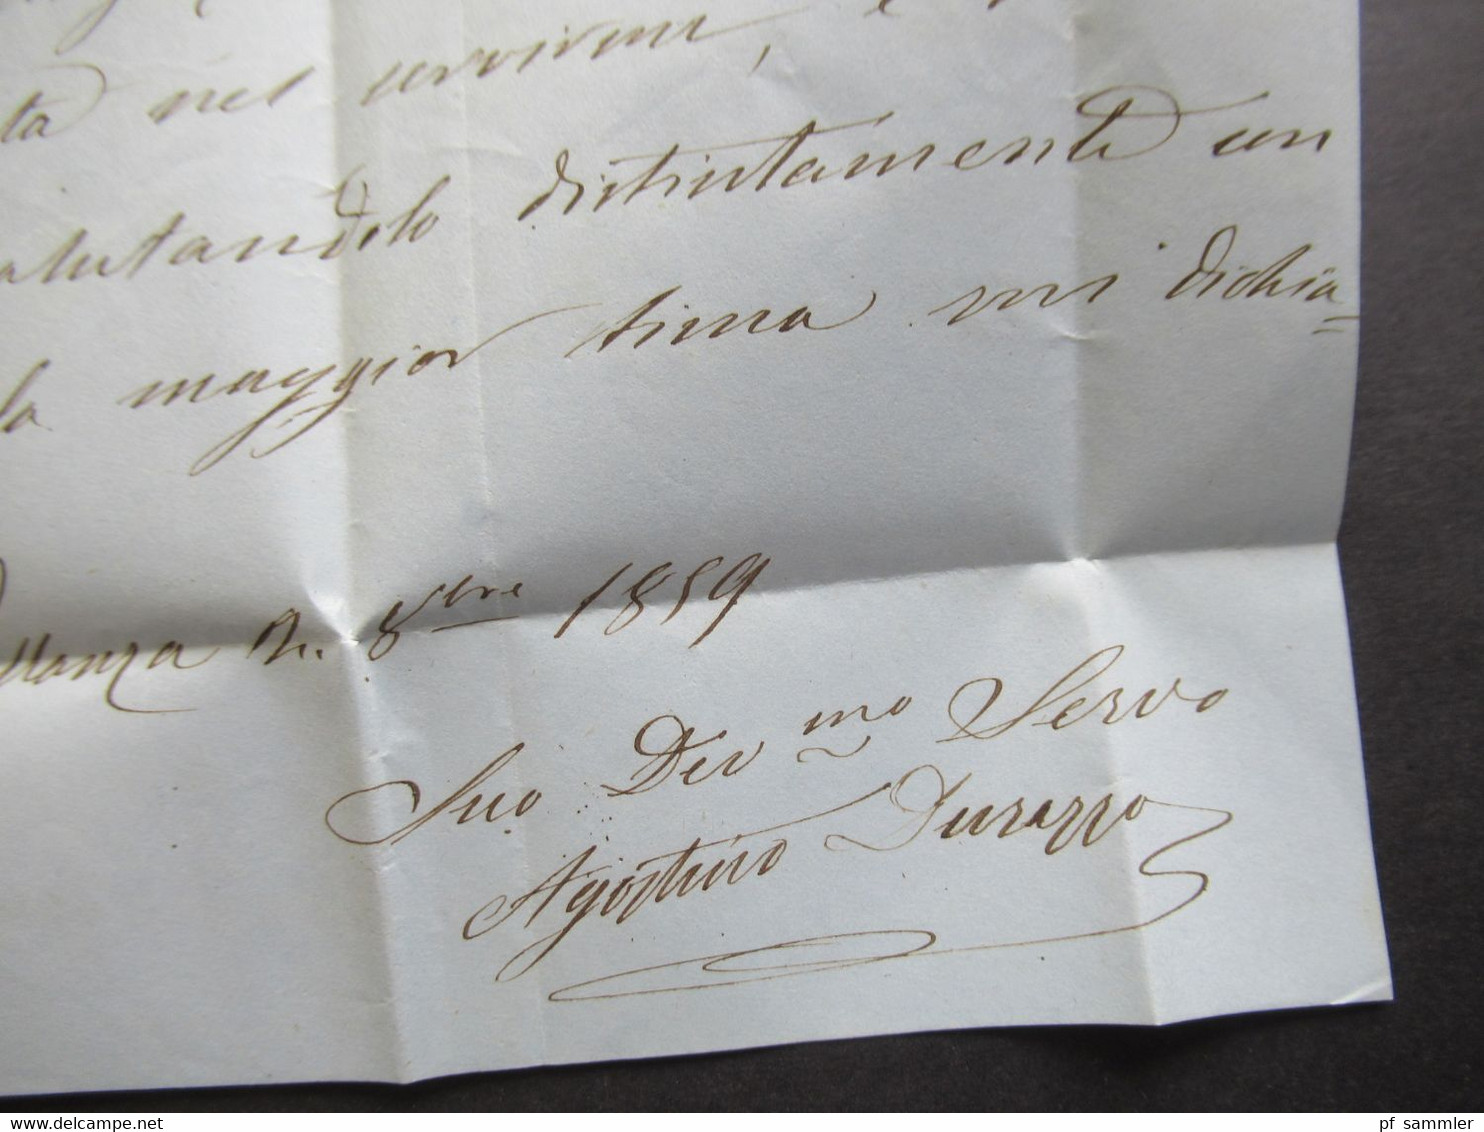 ta nel servirmi, e
alutandolo distintamente con
la maggior stima mi dichia=
llanza 2. 8bre 1859
Suo Devmo Servo
Agostino Durazzo
www.delcampe.net
pf_sammler